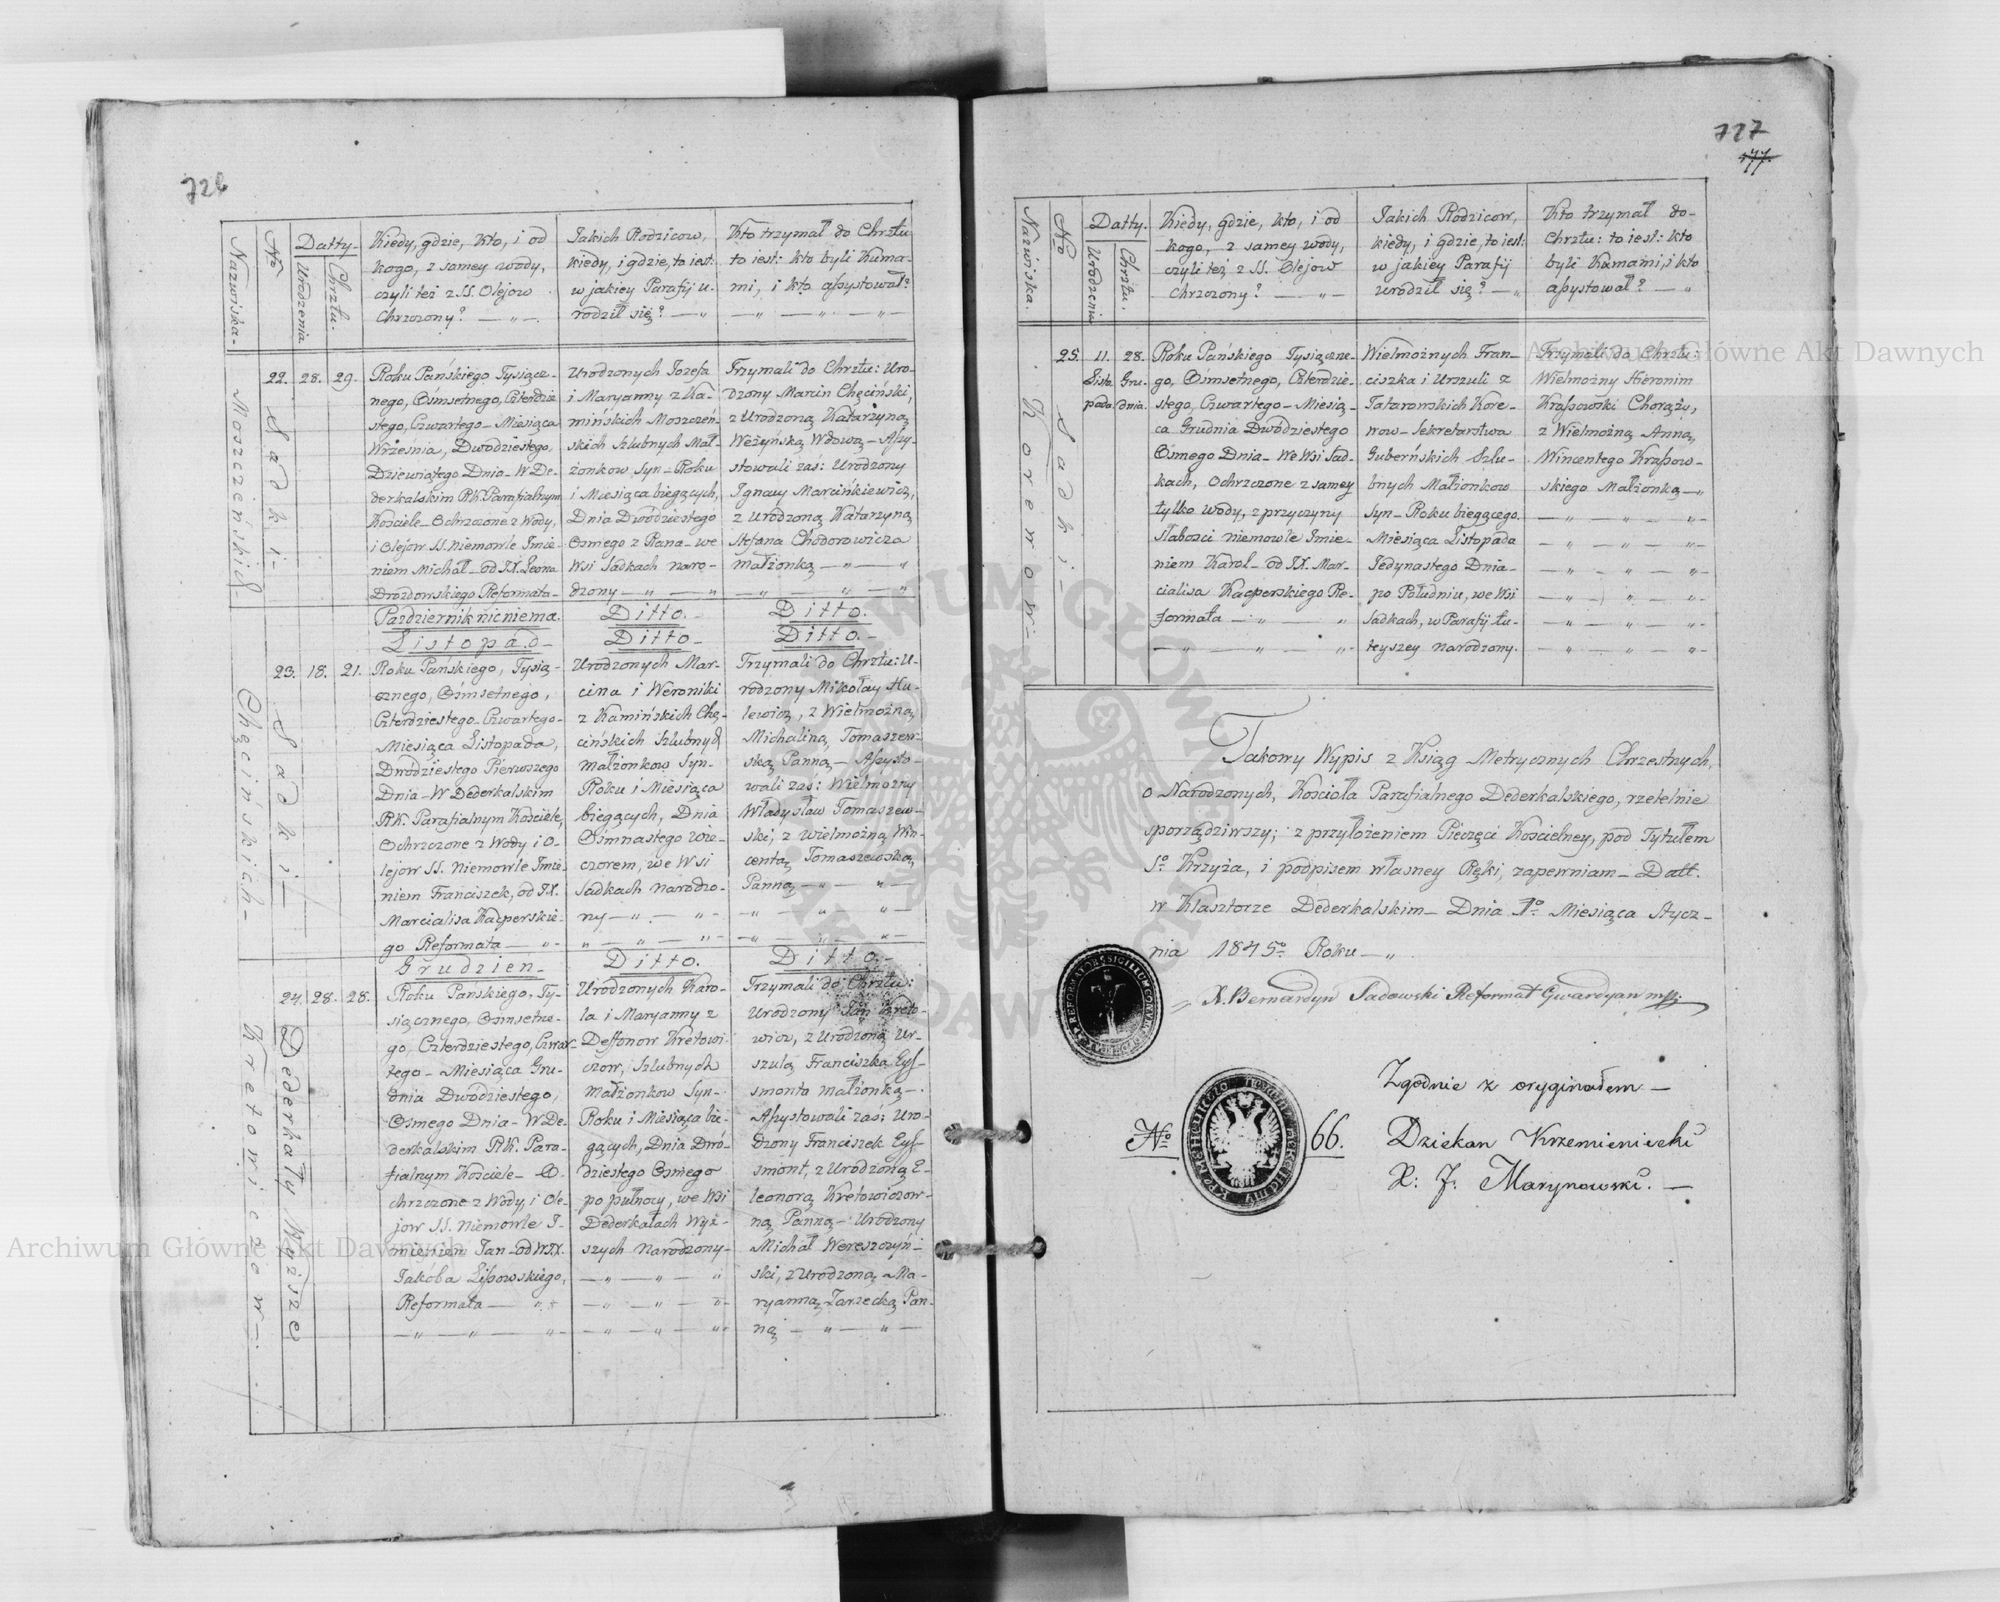 726
Nazwiska
No
Datty
Urodzenia
Chrztu
Kiedy, gdzie, kto, i od
kogo, z samey wody,
czyli też z SS. Olejow
Chrzczony?
Jakich Rodzicow,
kiedy, i gdzie, to iest:
w jakiey Parafij u-
rodził się?
Kto trzymał do Chrztu
to iest: kto byli Kuma-
mi, i kto assystował?
Moszczeńskich
22.
Sadki
28.
29.
Roku Pańskiego Tysiącz-
nego, Osmsetnego, Czterdzie
stego, Czwartego Miesiąca
Września, Dwudziestego,
Dziewiątego Dnia W De-
derkalskim RK. Parafialnym
Kościele Ochrzczone z Wody,
i Olejow SS. Niemowle Imie-
niem Michał od JX. Leona
Drozdowskiego Reformata
Urodzonych Jozefa
i Maryanny z Ka-
mińskich Moszczeń-
skich Szlubnych Mał-
żonkow Syn Roku
i Miesiąca biegących,
Dnia Dwódziestego
Osmego z Rana we
Wsi Sadkach naro-
dzony
Trzymali do Chrztu: Uro-
dzony Marcin Chęciński,
z Urodzoną Katarzyną
Weżyńską Wdową Assy-
stowali zaś: Urodzony
Ignacy Marcinkiewicz,
z Urodzoną Katarzyną
Stefana Chodorowicza
małżonką
Październik nic niema.
Ditto.
Ditto.
Listopad
Ditto
Ditto.
Chęcińskich
23.
Sadki
18.
21.
Roku Pańskiego, Tysią-
cznego, Osmsetnego,
Czterdziestego Czwartego
Miesiąca Listopada,
Dwodziestego Pierwszego
Dnia W Dederkalskim
RK. Parafialnym Kościele,
Ochrzczone z Wody i O-
lejow SS. Niemowle Imie-
niem Franciszek, od JX.
Marcialisa Kacperskie-
go Reformata
Urodzonych Mar-
cina i Weroniki
z Kamińskich Chę-
cińskich szlubnych
małżonkow Syn
Roku i Miesiąca
biegących, Dnia
Osimnastego wie-
czorem, we Wsi
Sadkach narodzo-
ny
Trzymali do Chrztu: U-
rodzony Mikołay Hu-
lewicz, z Wielmożną
Michaliną Tomaszew-
ską Panną Assysto-
wali zaś: Wielmożny
Władysław Tomaszew-
ski, z Wielmożną Win-
centą Tomaszewską,
Panną
Grudzien
Ditto.
Ditto.
Kretowiczow
24.
Dederkały Wyższe
28.
28.
Roku Pańskiego, Ty-
siącznego, Osmsetne-
go, Czterdziestego, Czwar-
tego Miesiąca Gru-
dnia Dwódziestego,
Osmego Dnia W De-
derkalskim RK. Para-
fialnym Kościele O-
chrzczone z Wody, i Ole-
jow SS. Niemowle I-
mieniem Jan od W.JX.
Jakóba Lissowskiego,
Reformata
Urodzonych Karo-
la i Maryanny z
Deffonow Kretowi-
czow, Szlubnych
Małżonkow Syn
Roku i Miesiąca bie-
gących, Dnia Dwó-
dziestego Osmego
po pułnocy, we Wsi
Dederkałach Wyż-
szych narodzony
Trzymali do Chrztu:
Urodzony Jan Kreto-
wicz, z Urodzoną Ur-
szulą Franciszka Eys-
smonta małżonką
Assystowali zaś: Uro-
dzony Franciszek Eys-
smont, z Urodzoną E-
leonorą Kretowiczow-
ną Panną Urodzony
Michał Wereszczyń-
ski, z Urodzoną Ma-
ryanną Zarzecką Pan-
ną
727
Nazwiska.
No
Datty.
Urodzenia
Chrztu.
Kiedy, gdzie, kto, i od
kogo, z samey wody,
czyli też z SS. Olejow
Chrzczony?
Jakich Rodzicow,
kiedy, i gdzie, to iest:
w jakiey Parafij
urodził się?
Kto trzymał do-
Chrztu: to iest: kto
byli Kumami, i kto
assystował?
Korewow
25.
Sadki
11.
Listo
pada
28.
Gru-
dnia.
Roku Pańskiego Tysiączne-
go, Osmsetnego, Czterdzie-
stego, Czwartego Miesią-
ca Grudnia Dwódziestego
Osmego Dnia We Wsi Sad-
kach, Ochrzczone z samey
tylko wody, z przyczyny
słabosci niemowle Imie-
niem Karol od JX. Mar-
cialisa Kacperskiego Re-
formata
Wielmożnych Fran-
ciszka i Urszuli z
Tatarowskich Kore-
wow Sekretarstwa
Guberńskich Szlu-
bnych Małżonkow
Syn Roku biegącego
Miesiąca Listopada
Jedynastego Dnia
po Południu, we Wsi
Sadkach, w Parafij tu-
teyszey narodzony.
Trzymali do Chrztu:
Wielmożny Hieronim
Krassowski Chorąży,
z Wielmożną Anną,
Wincentego Krassow-
skiego Małżonką
Takowy Wypis z Ksiąg Metrycznych Chrzestnych,
o Narodzonych, Kościoła Parafialnego Dederkalskiego, rzetelnie
sporządziwszy; z przyłożeniem Pieczęci Kościelney, pod Tytułem
So Krzyża, i podpisem własney Ręki, zapewniam Datt.
w Klasztorze Dederkalskim Dnia 1o Miesiąca Stycz-
nia 1845o Roku
X. Bernardyn Sadowski Reformat Gwardyan mpp.
Zgodnie z oryginałem
No 66.
Dziekan Krzemieniecki
X: J. Marynowski.
Archiwum Główne Akt Dawnych
Archiwum Główne Akt Dawnych